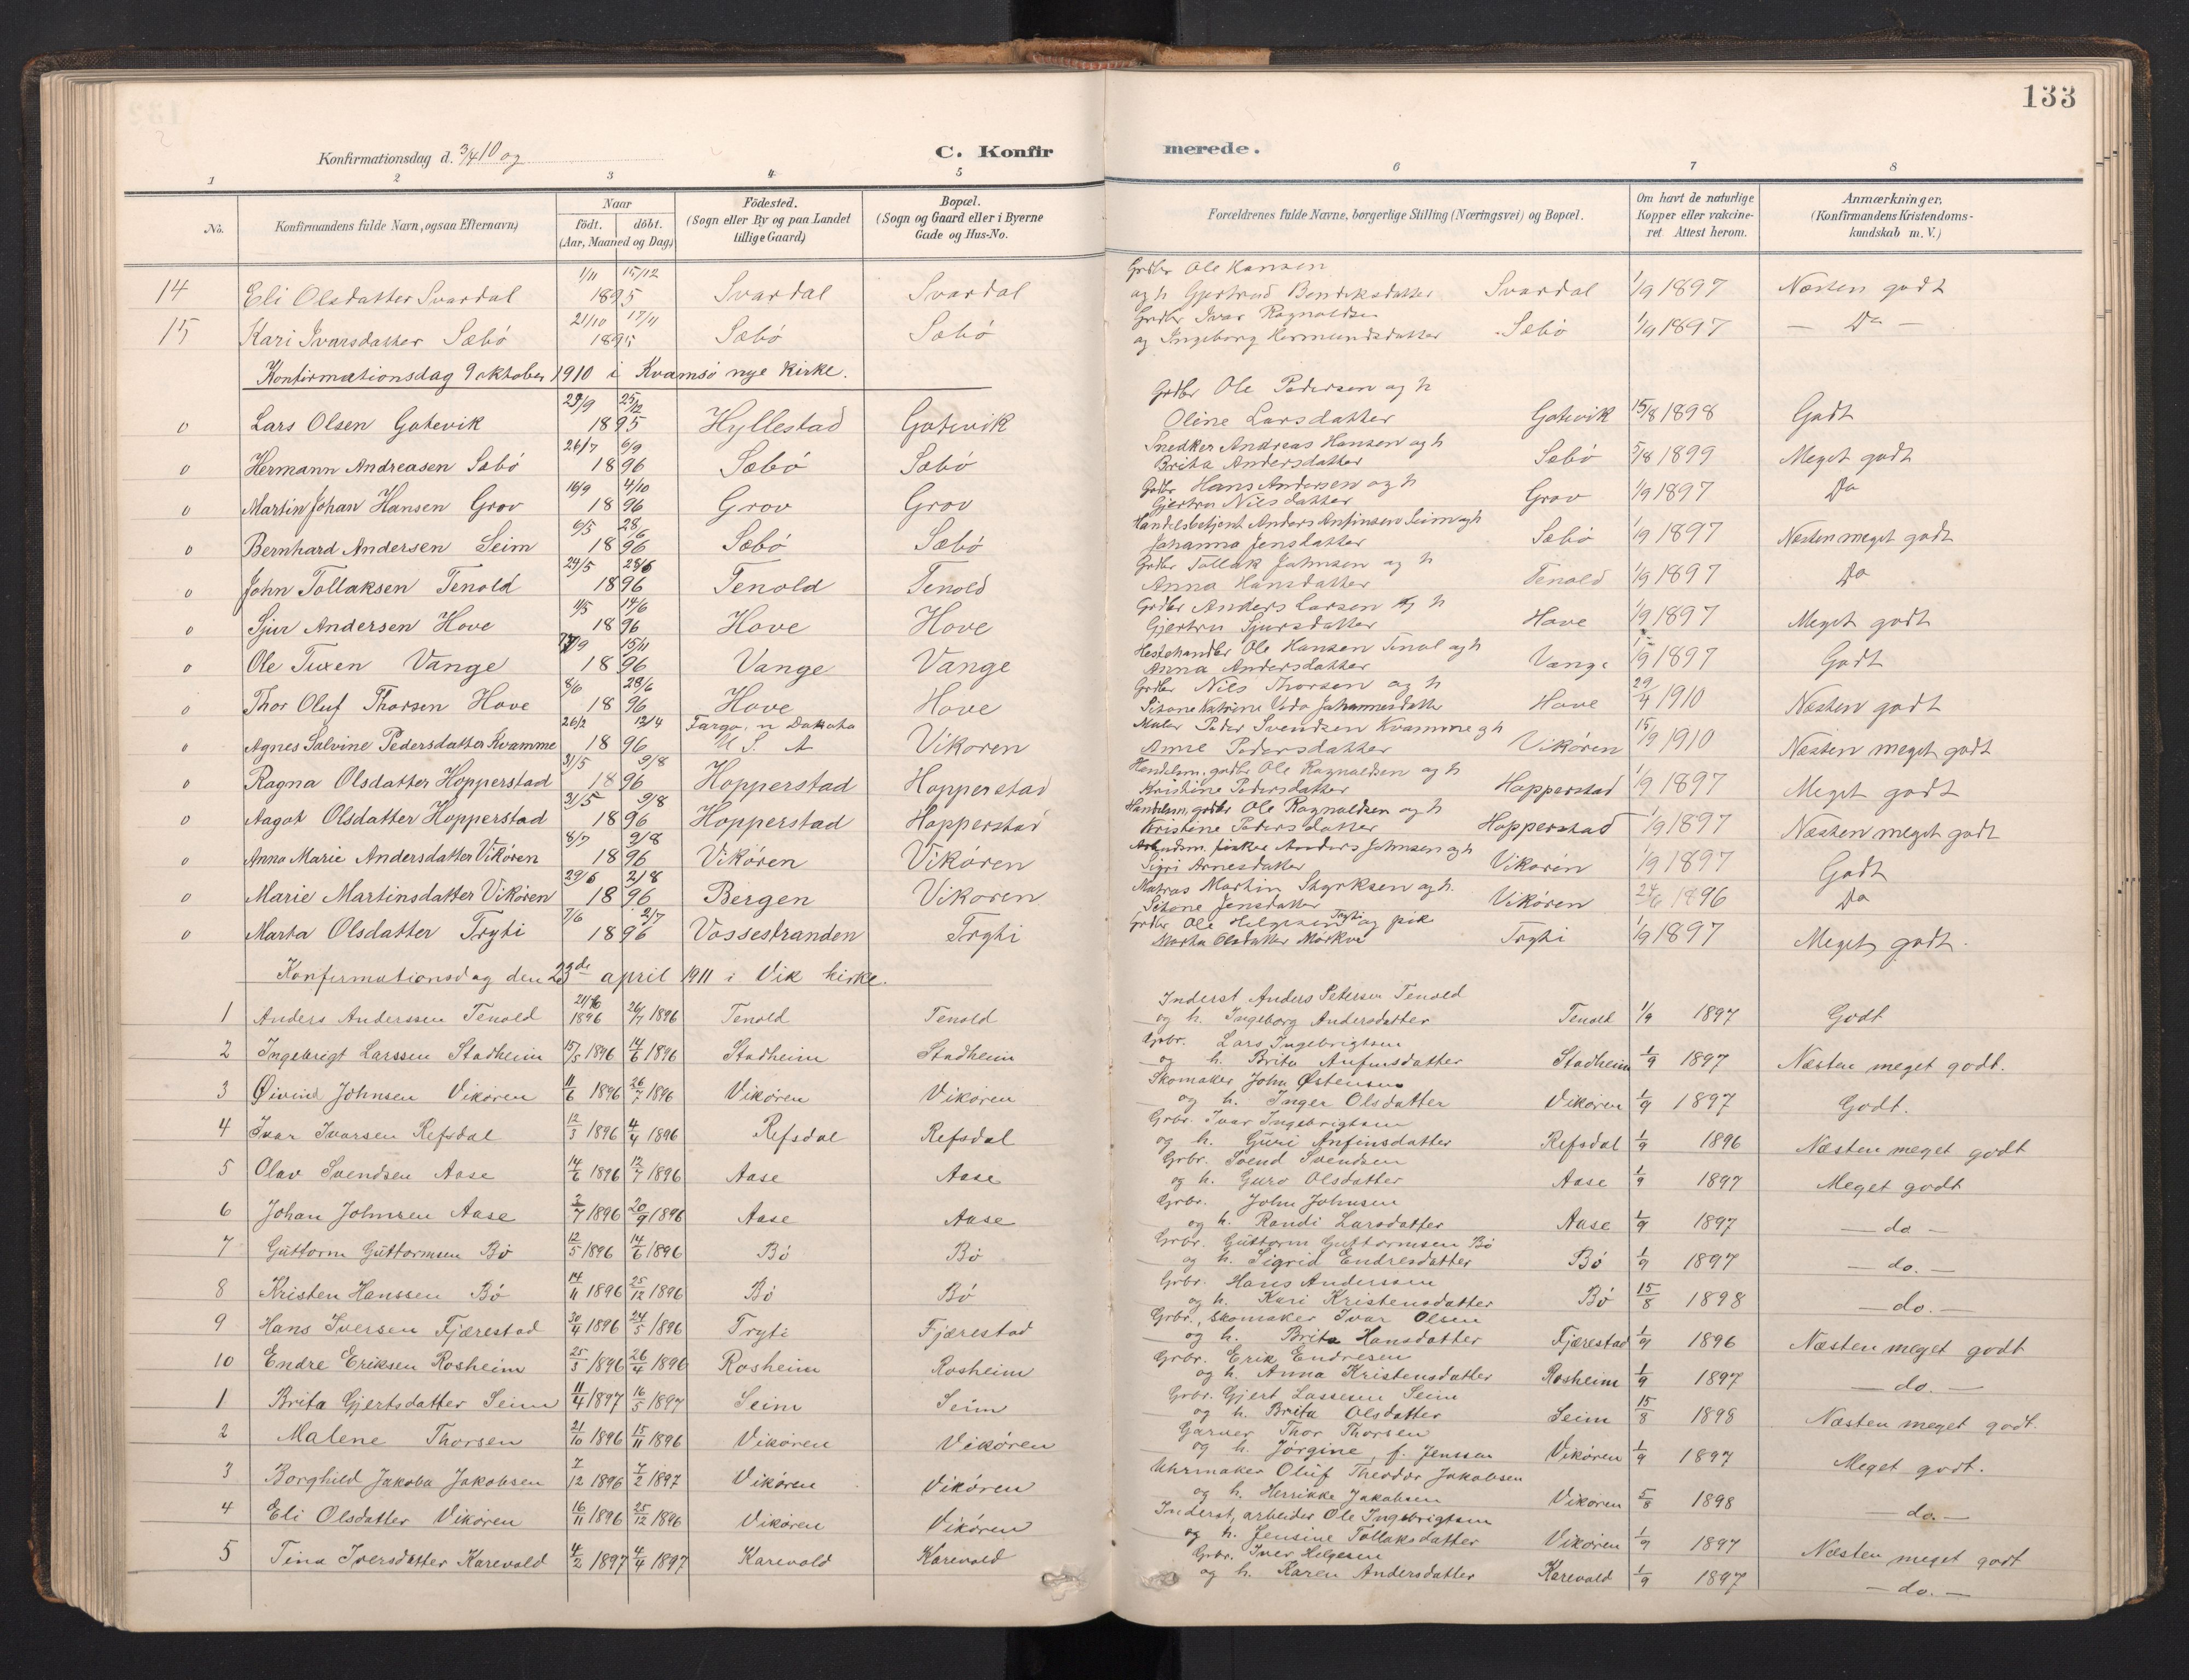 133
Konfirmationsdag d. 3/4 10 og
C. Konfirmerede.
1 2 3 4 5 6 7 8
No. Konfirmandens fulde Navn, ogsaa Efternavn) Naar födt. döbt. (Aar, Maaned og Dag) Födested. (Sogn eller By og paa Landet tillige Gaard) Bopæl. (Sogn og Gaard eller i Byerne Gade og Hus-No. Forældrenes fulde Navne, borgerlige Stilling (Næringsvei) og Bopæl. Om havt de naturlige Kopper eller vakcineret. Attest herom. Anmærkninger. (Konfirmandens Kristendomskundskab m. V.)
14 Eli Olsdatter Svardal 1/11 15/12 1895 Svardal Svardal Grdbr Ole Hansen og h Gjertrud Bendiksdatter Svardal 1/9 1897 Næsten godt
15 Kari Ivarsdatter Sæbö 21/10 17/11 1895 Sæbö Sæbö Grdbr Ivar Ragnaldsen og Ingeborg Hermundsdatter Sæbö 1/9 1897 — Do —
Konfirmationsdag 9 oktober 1910 i Kvamsö nye Kirke.
o Lars Olsen Gotevik 29/9 25/12 1895 Hyllestad Gotevik Grdbr Ole Pedersen og h Oline Larsdatter Gotevik 15/8 1898 Godt
o Hermann Andreasen Sæbö 26/7 6/9 1896 Sæbö Sæbö Snedker Andreas Hansen og h Brita Andersdatter Sæbö 5/8 1899 Meget godt
o Martin Johan Hansen Grov 16/9 4/10 1896 Grov Grov Grdbr Hans Andersen og h Gjertru Nilsdatter Grov 1/9 1897 Do
o Bernhard Andersen Seim 6/5 28/6 1896 Sæbö Sæbö Handelsbetjent Anders Anfinsen Seim og h Johanna Jensdatter Sæbö 1/9 1897 Næsten meget godt
o John Tollaksen Tenold 29/5 28/6 1896 Tenold Tenold Grdbr Tollak Johnsen og h Anna Hansdatter Tenold 1/9 1897 Do
o Sjur Andersen Hove 1/5 14/6 1896 Hove Hove Grdbr Anders Larsen og h Gjertru Sjursdatter Hove 1/9 1897 Meget godt
o Ole Tuxen Vange 15/11 1896 Vange Vange Hestehandler Ole Hansen Tenol og h Anna Andersdatter Vange 1/9 1897 Godt
o Thor Oluf Thorsen Hove 8/6 28/6 1896 Hove Hove Grdbr Nils Thorsen og h Johannesdatter Hove 29/4 1910 Næsten godt
o Agnes Salvine Pedersdatter Kvamme 26/2 12/4 1896 Fargo. n Dakota U S. A Vikoren Maler Peder Svendsen Kvamme og h Anne Pedersdatter Vikören 15/9 1910 Næsten meget godt
o Ragna Olsdatter Hopperstad 31/5 9/8 1896 Hopperstad Hopperstad Handelsm. grdbr Ole Ragnaldsen og h Kristine Pedersdatter Hopperstad 1/9 1897 Meget godt
o Aagot Olsdatter Hopperstad 31/5 9/8 1896 Hopperstad Hopperstad Handelsm. grdbr Ole Ragnaldsen og h Kristine Pedersdatter Hopperstad 1/9 1897 Næsten meget godt
o Anna Marie Andersdatter Vikören 8/7 9/8 1896 Vikören Vikören Arbeidsm. fisker Anders Johnsen og h Sigri Arnesdatter Vikoren 1/9 1897 Godt
o Marie Martinsdatter Vikören 29/6 2/8 1896 Bergen Vikoren Matros Martin Styrksen og h. Jensdatter Vikören 1896 Do
o Marta Olsdatter Tryti 7/6 2/7 1896 Vossestranden Tryti Grdbr Ole Helgesen Tryti og pike Marta Olsdatter Mörkve Tryti 1/9 1897 Meget godt.
Konfirmationsdag den 23de april 1911 i Vik kirke.
1 Anders Anderssen Tenold 21/6 1896 26/7 1896 Tenold Tenold Inderst Anders Petersen Tenold og h. Ingeborg Andersdatter Tenold 1/9 1897 Godt
2 Ingebrigt Larssen Stadheim 15/5 1896 14/6 1896 Stadheim Stadheim Grbr. Lars Ingebrigtsen og h. Brita Anfinsdatter Stadheim 1/9 1897 Næsten meget godt.
3 Øivind Johnsen Vikören 11/6 1896 26/7 1896 Vikören Vikören Skomaker John Østensen og h. Inger Olsdatter Vikören 1/9 1897 Godt.
4 Ivar Ivarsen Refsdal 12/3 1896 4/4 1896 Refsdal Refsdal Grbr. Ivar Ingebrigtsen og h. Guri Anfinsdatter Refsdal 1/9 1896 Næsten meget godt
5 Olav Svendsen Aase 14/6 1896 12/7 1896 Aase Aase Grbr. Svend Svendsen og h. Guro Olsdatter Aase 1/9 1897 Meget godt
6 Johan Johnsen Aase 2/7 1896 20/9 1896 Aase Aase Grbr. John Johnsen og h. Randi Larsdatter Aase 1/9 1897 — do —
7 Guttorm Guttormsen Bö 12/5 1896 14/6 1896 Bö Bö Grbr. Guttorm Guttormsen Bö og h. Sigrid Endresdatter Bö 1/9 1897 — do. —
8 Kristen Hanssen Bö 14/11 1896 25/12 1896 Bö Bö Grbr. Hans Anderssen og h. Kari Kristensdatter Bö 15/8 1898 — do. —
9 Hans Iversen Fjærestad 30/4 1896 24/5 1896 Tryti Fjærestad Grbr., skomaker Ivar Olsen og h. Brita Hansdatter Fjærestad 1/9 1896 Næsten meget godt
10 Endre Eriksen Rosheim 25/3 1896 26/4 1896 Rosheim Rosheim Grbr. Erik Endresen og h. Anna Kristensdatter Rosheim 1/9 1897 — do. —
1 Brita Gjertsdatter Seim 11/4 1897 16/5 1897 Seim Seim Grbr. Gjert Lassesen Seim og h. Brita Olsdatter Seim 15/8 1898 Næsten meget godt.
2 Malene Thorsen 21/10 1896 15/11 1896 Vikören Vikören Garver Thor Thorsen og h. Jörgine, f. Jenssen Vikören 1/9 1897 Meget godt.
3 Borghild Jakoba Jakobsen 7/12 1896 7/2 1897 Vikören Vikören Uhrmaker Oluf Theodor Jakobsen og h. Henrikke Jakobsen Vikören 5/8 1898 — do. —
4 Eli Olsdatter Vikören 16/11 1896 25/12 1896 Vikören Vikören Inderst, arbeider Ole Ingebrigtsen og h. Jensine Tollaksdatter Vikören 1/9 1897 Næsten meget godt
5 Tina Iversdatter Karevold 4/2 1897 4/4 1897 Karevold Karevold Grbr. Iver Helgesen og h. Karen Andersdatter Karevold 1/9 1897 — do. —